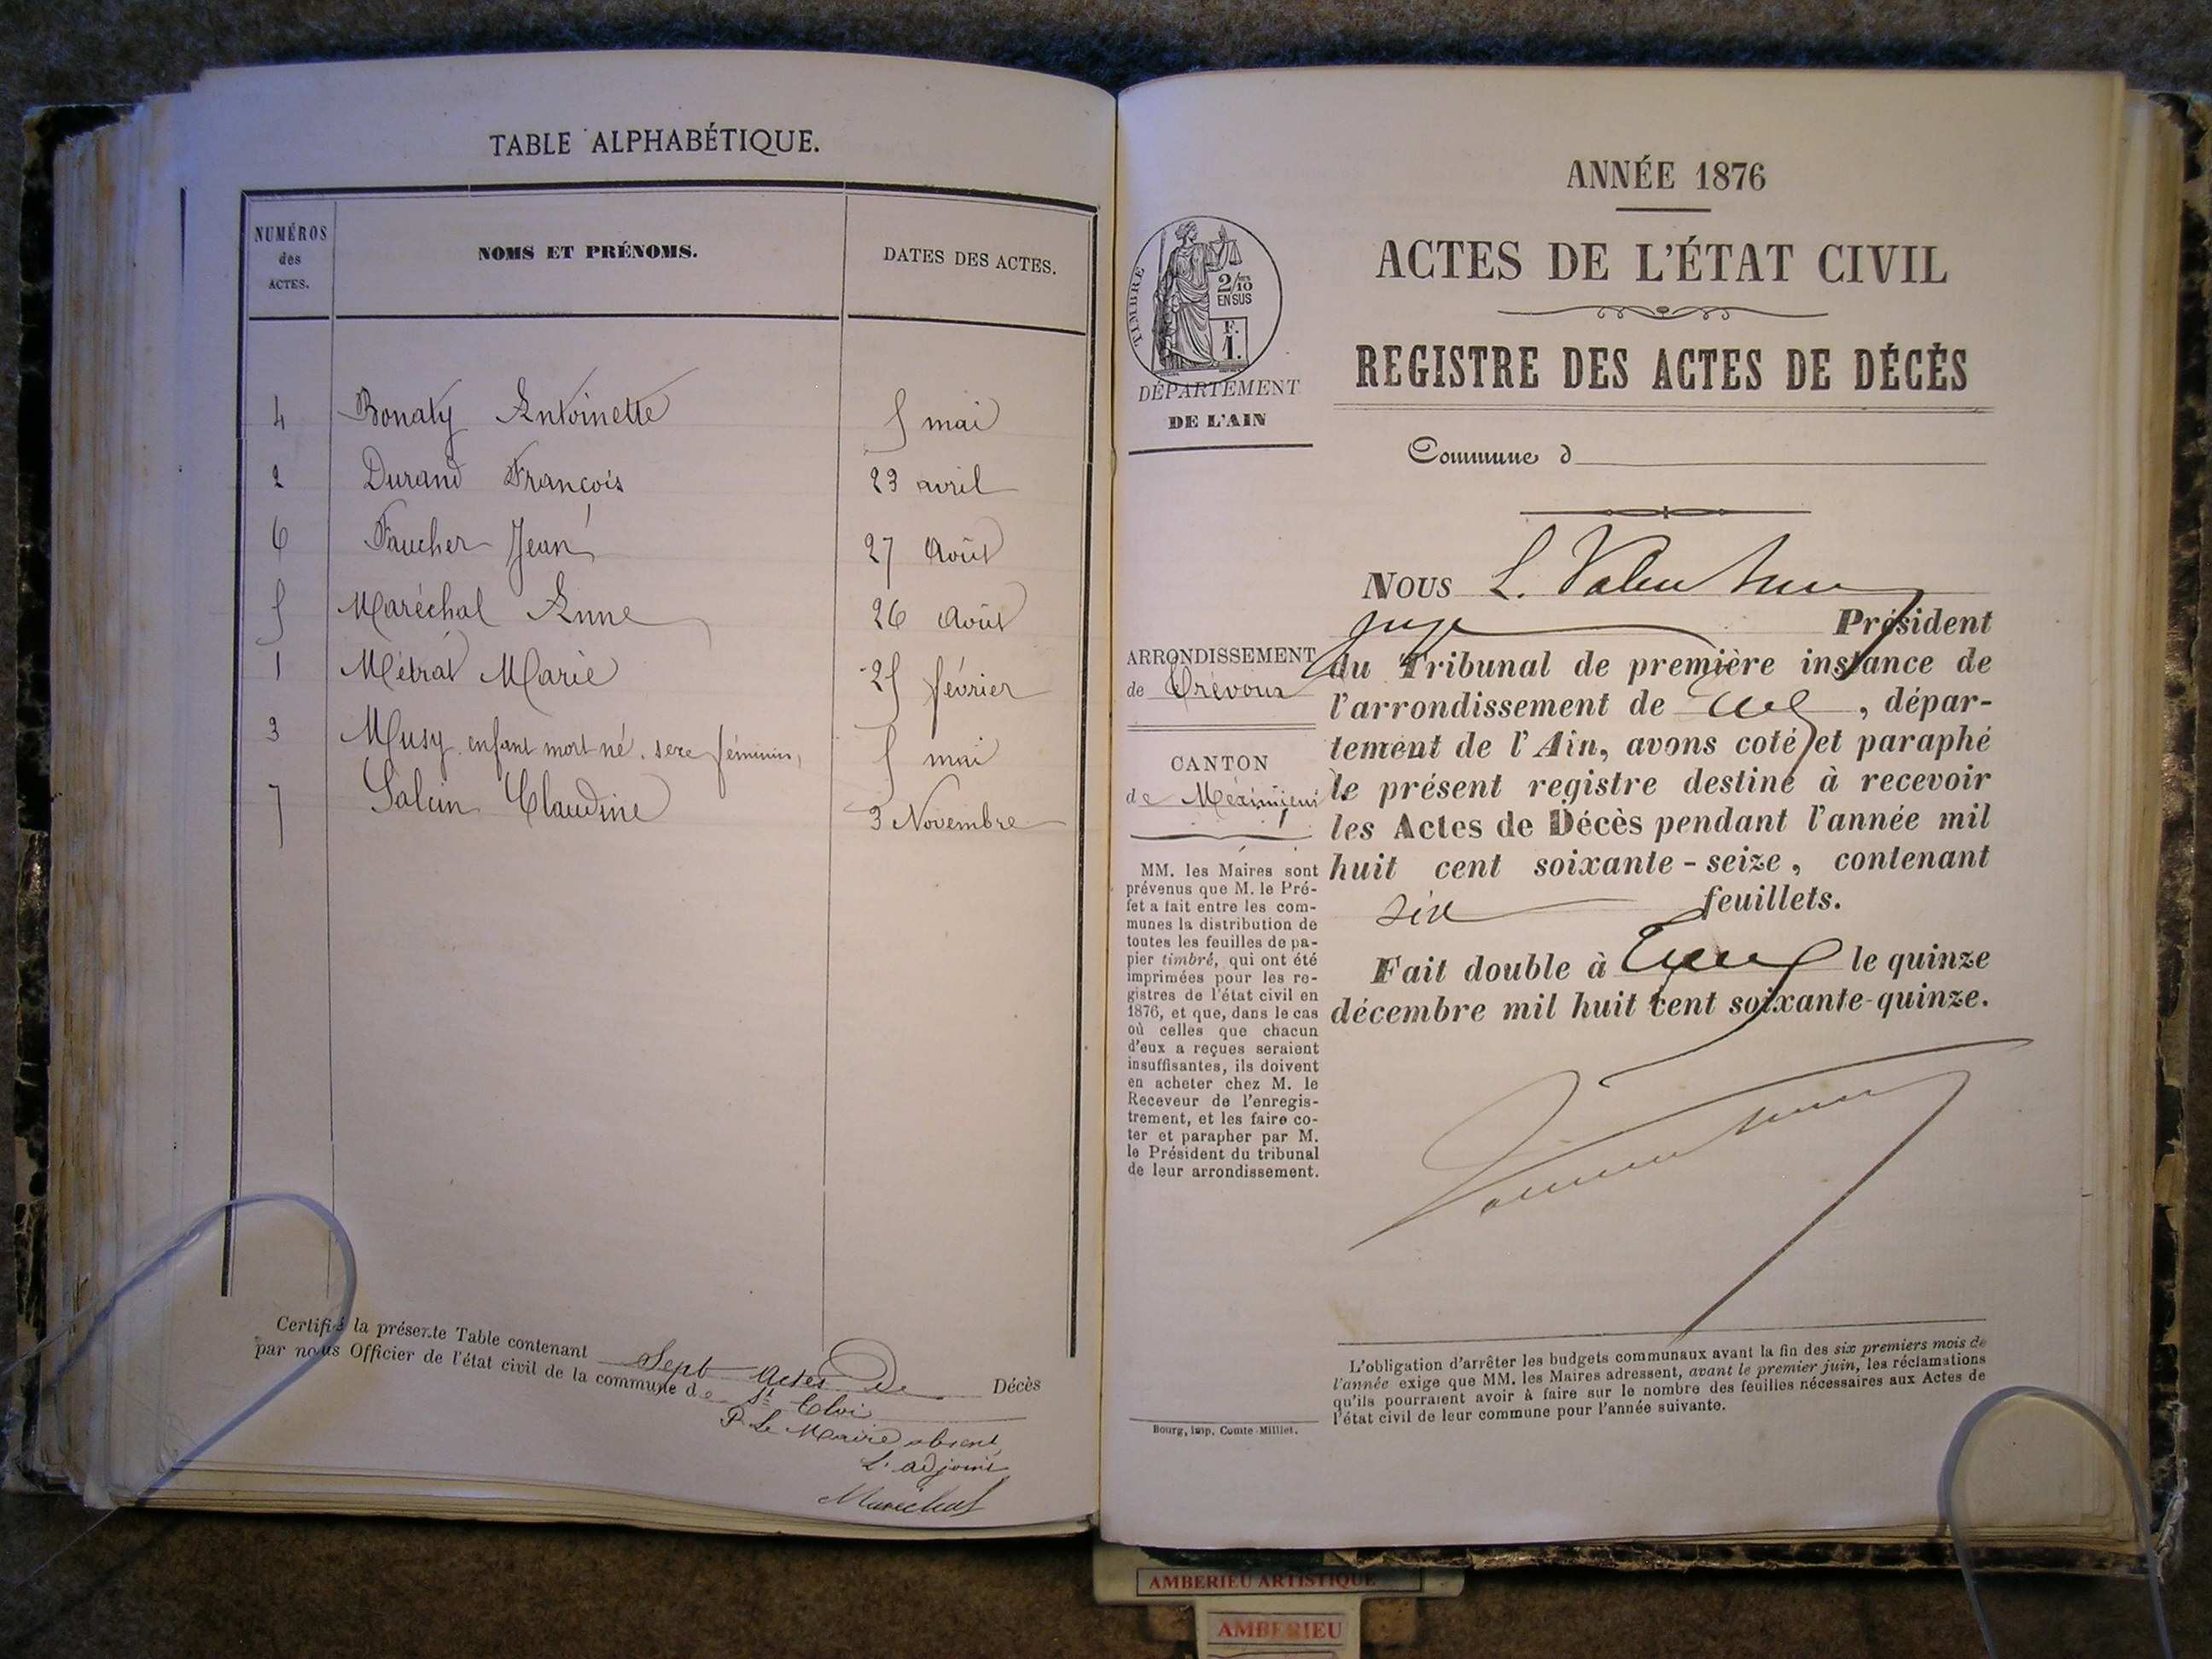 TABLE ALPHABÉTIQUE.
NUMÉROS des ACTES.
NOMS ET PRÉNOMS.
DATES DES ACTES.
4 Bonaty Antoinette 5 mai
2 Durand François 23 avril
6 Faucher Jean 27 Août
5 Maréchal Anne 26 Août
1 Métrat Marie 25 février
3 Musy enfant mort né. sexe féminin, 5 mai
7 Salcin Claudine 3 Novembre
Certifié la présente Table contenant Sept Actes de Décès
par nous Officier de l'état civil de la commune de St Eloi
P. Le Maire absent,
L'adjoint
Maréchal
ANNÉE 1876
ACTES DE L'ÉTAT CIVIL
REGISTRE DES ACTES DE DÉCÈS
TIMBRE
2/10 EN SUS
F. 1.
DÉPARTEMENT
DE L'AIN
Commune d
ARRONDISSEMENT
de Trévoux
CANTON
de Meximieux
MM. les Maires sont
prévenus que M. le Pré-
fet a fait entre les com-
munes la distribution de
toutes les feuilles de pa-
pier timbré, qui ont été
imprimées pour les re-
gistres de l'état civil en
1876, et que, dans le cas
où celles que chacun
d'eux a reçues seraient
insuffisantes, ils doivent
en acheter chez M. le
Receveur de l'enregis-
trement, et les faire co-
ter et parapher par M.
le Président du tribunal
de leur arrondissement.
Bourg, imp. Comte-Milliet.
NOUS L.
juge Président
du Tribunal de première instance de
l'arrondissement de , dépar-
tement de l'Ain, avons coté et paraphé
le présent registre destiné à recevoir
les Actes de Décès pendant l'année mil
huit cent soixante-seize, contenant
six feuillets.
Fait double à le quinze
décembre mil huit cent soixante-quinze.
L'obligation d'arrêter les budgets communaux avant la fin des six premiers mois de
l'année exige que MM. les Maires adressent, avant le premier juin, les réclamations
qu'ils pourraient avoir à faire sur le nombre des feuilles nécessaires aux Actes de
l'état civil de leur commune pour l'année suivante.
AMBERIEU ARTISTIQUE
AMBERIEU